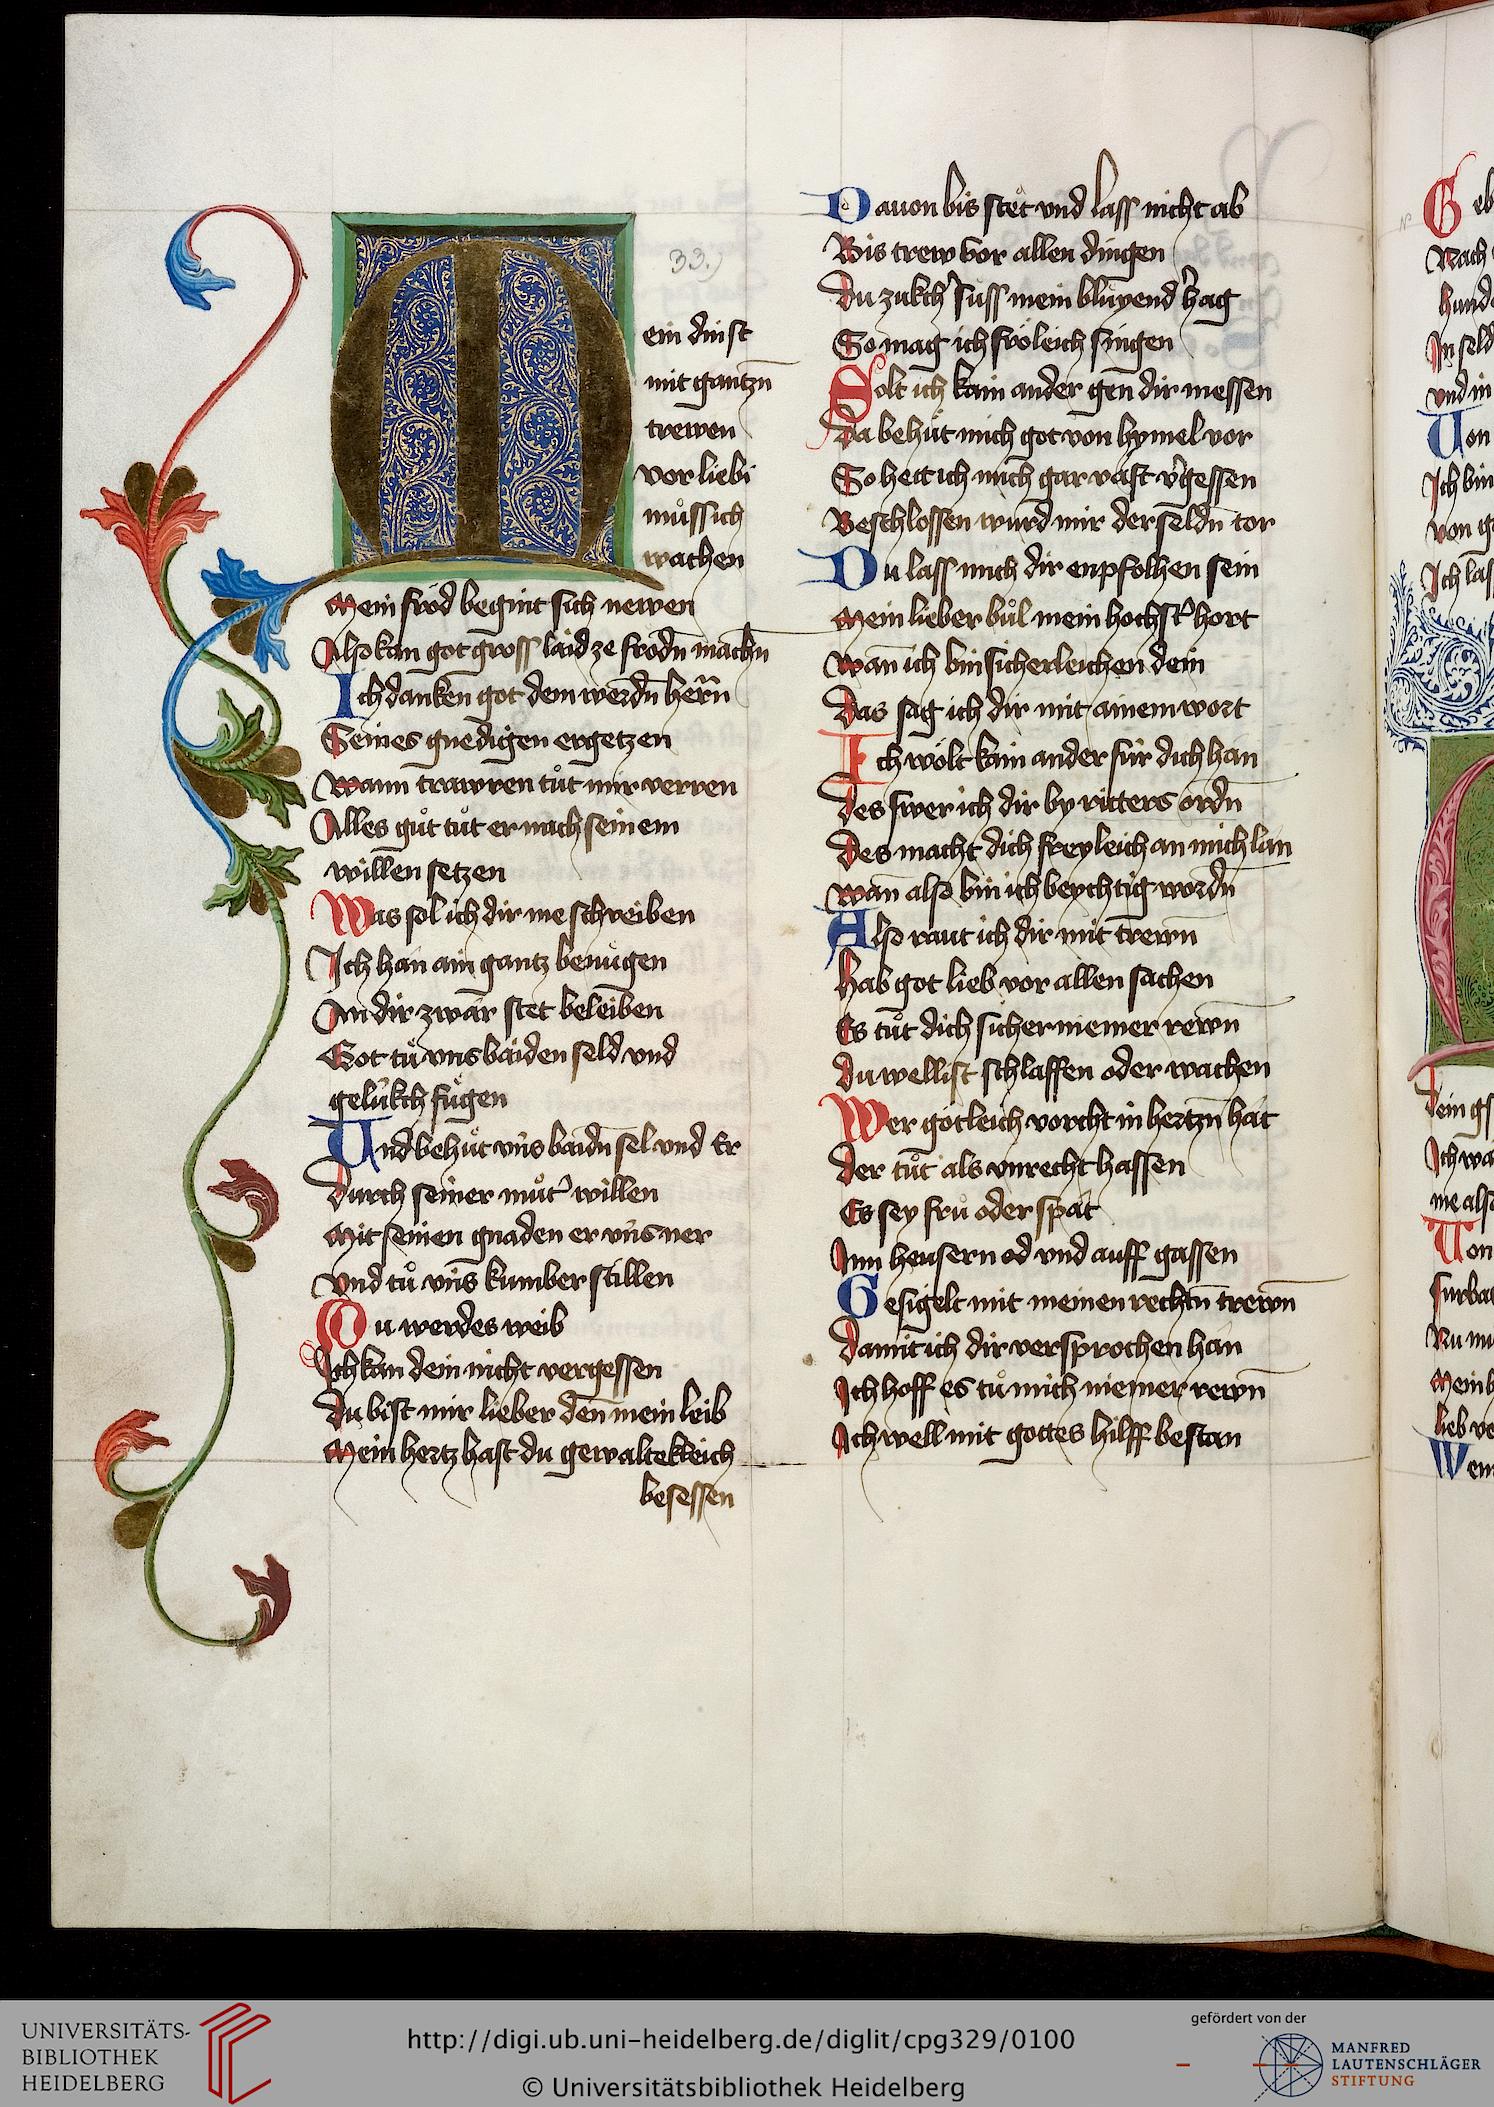 33.)
Mein dinst
mit gantzn̄
trewen
vor liebi
můss ich
wachen
Mein fröd begint sich newen
Also kan got gross laid ze frödn̄ machn̄
Ich danken got dem werdn̄ herrn̄
Seines gnedigen ergetzen
Wann trawren tůt mir verren
Alles gůt tůt er nach seinem
willen setzen
Was sol ich dir me schreiben
Ich han ain gantz benügen
An dir zwar stet beleiben
Got tů vns baiden seld vnd
gelükch fügen
Und behüt vns baidn̄ sel vnd Er
Durch seiner můt' willen
Mit seinen gnaden er vns ner
Vnd tů vns kumber stillen
Du werdes weib
Ich kan dein nicht vergessen
Du bist mir lieber den̄ mein leib
Mein hertz hast du gewaltekleich
besessen
Dauon bis stet vnd lass nicht ab
Bis trew vor allen dingen
Du zukch' süss mein blüyend' hag
So mag ich fröleich singen
Solt ich kain ander gen dir messen
Da behüt mich got von hymel vor
So hett ich mich gar vast v'gessen
Beschlossen wurd mir der seldn̄ tor
Du lass mich dir enpfolhen sein
Mein lieber bůl mein hochst' hort
Wan̄ ich bin sicherleichen dein
Das sag ich dir mit ainem wort
Ich wolt kain ander für dich han
Des swer ich dir by ritters ordn̄
Des macht dich freyleich an mich lan
Wan̄ also bin ich beychtig wordn̄
Also raut ich dir mit trewn̄
Hab got lieb vor allen sachen
Es tůt dich sicher niemer rewn̄
Du wellist schlaffen oder wachen
Wer götleich vorcht in hertzn̄ hat
Der tůt als vnrecht hassen
Es sey frů oder spat
Inn heusern od vnd auff gassen
Gesigelt mit meinen rechtn̄ trewn̄
Damit ich dir versprochen han
Ich hoff es tů mich niemer rewn̄
Ich well mit gottes hilff bestan
G eb
Nach
hund
In seld
vnd in
Uon
Ich bin
von g
Ich las
Dein gs
Ich wa
me als
Uon
fürba
Nu mu
Mein
lieb ve
Wem
UNIVERSITÄTS-
BIBLIOTHEK
HEIDELBERG
http://digi.ub.uni-heidelberg.de/diglit/cpg329/0100
© Universitätsbibliothek Heidelberg
gefördert von der
MANFRED
LAUTENSCHLÄGER
STIFTUNG